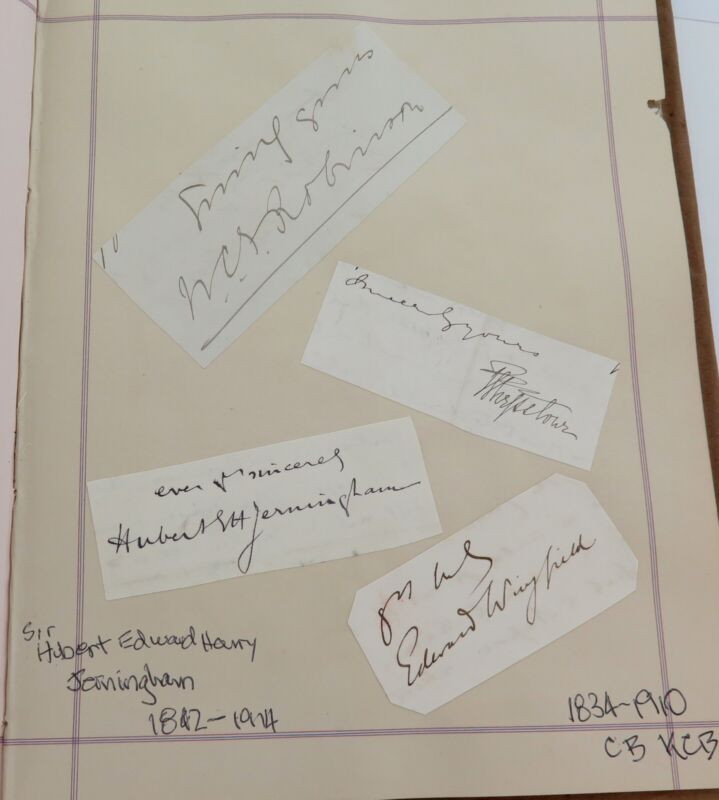 W.C.F. Robinson
Sincerely yours
ever yrs sincerely
Hubert E H Jerningham
yrs truly
Edward Wingfield
Sir
Hubert Edward Harry
Jerningham
1842-1914
1834-1910
CB KCB